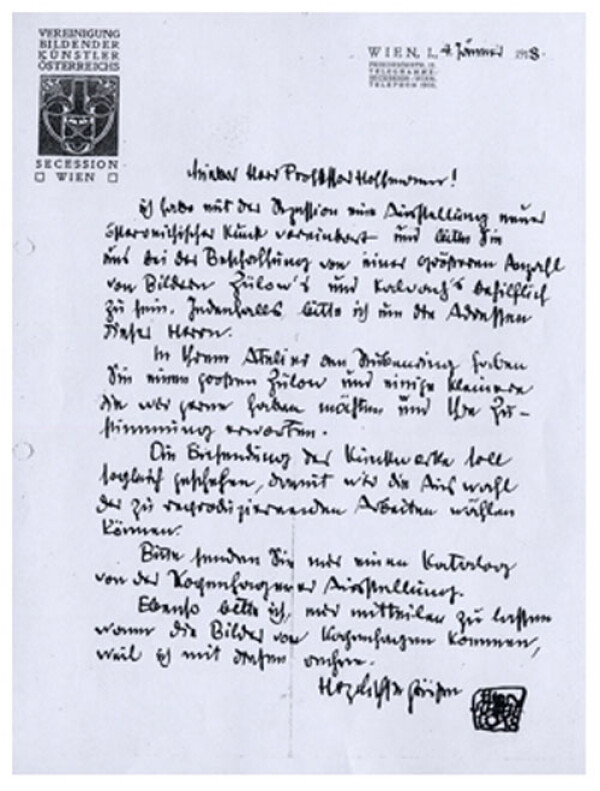 VEREINIGUNG
BILDENDER
KÜNSTLER
ÖSTERREICHS
SECESSION
WIEN
WIEN, I., 4. Jänner 1918.
TELEGRAMME:
SECESSION WIEN.
TELEPHON
Lieber Herr Professor Hoffmann!
ich habe mit der Sezession eine Ausstellung neuer
österreichischer Kunst vereinbart und bitte Sie
uns bei der Beschaffung von einer größeren Anzahl
von Bildern Zülow's und Kalvach's behilflich
zu sein. Jedenfalls bitte ich um die Adressen
dieser Herrn.
In Ihrem Atelier am Stubenring haben
Sie einen großen Zülow und einige kleinere
die wir gerne haben möchten und Ihre Zu-
stimmung erwarten.
Die Einsendung der Kunstwerke soll
sogleich geschehen, damit wir die Auswahl
der zu reproduzierenden Arbeiten wählen
können.
Bitte senden Sie mir einen Katalog
von der Kopenhagener Ausstellung.
Ebenso bitte ich, mir mitteilen zu lassen
wann die Bilder von Kopenhagen kommen,
weil ich mit diesen rechne.
Herzlichste Grüße